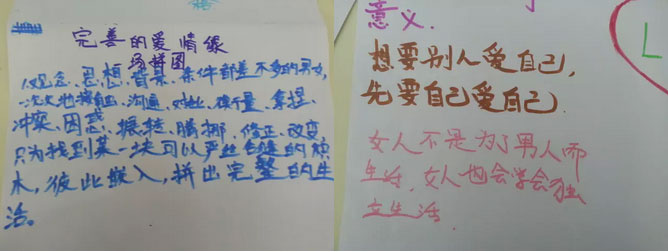 完善的爱情缘
场拼图
观念、思想、背景、条件都差不多的男女,
一次次地接触、沟通、对比、碰撞、拿捏、
冲突、困惑、振转、腾挪、修正、改变
只为找到某一块可以严丝合缝的积
木,彼此嵌入,拼出完整的生
活。
意义.
想要别人爱自己,
先要自己爱自己.
女人不是为了男人而
生活,女人也会学会独
立生活
L